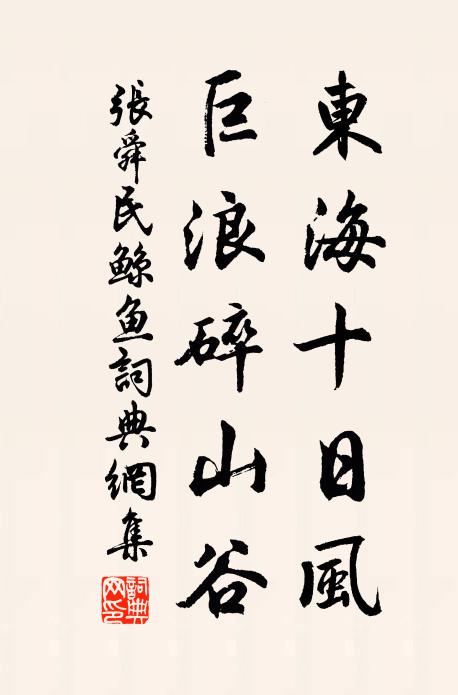 東海十日風
巨浪碎山谷
張舜民鯨魚詞典網集
詞典網印